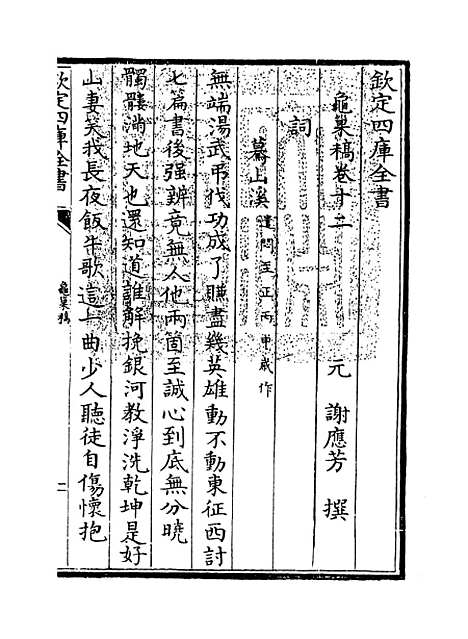 欽定四庫全書
龜巢稿卷十二
元 謝應芳 撰
詞
驀山溪遣悶至正丙申歲作
無端湯武弔伐功成了賺盡幾英雄動不動東征西討
七篇書後强辨竟無人他兩箇至誠心到底無分曉
髑髏滿地天也還知道誰解挽銀河教淨洗乾坤是好
山妻笑我長夜飯牛歌這一曲少人聽徒自傷懷抱
欽定四庫全書
龜巢稿
一